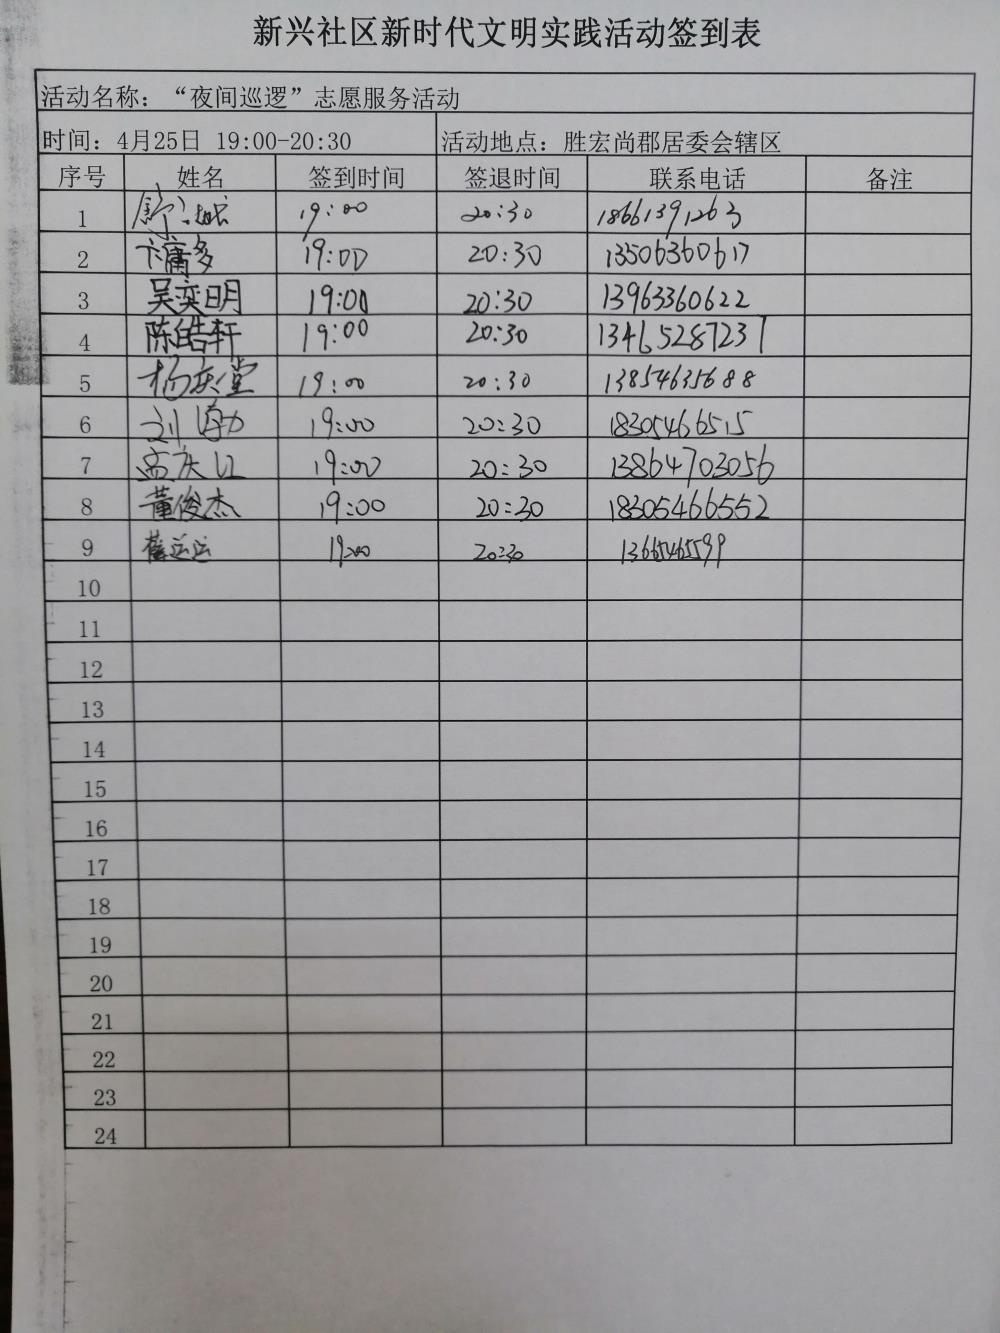 新兴社区新时代文明实践活动签到表
活动名称：“夜间巡逻”志愿服务活动
时间：4月25日 19:00-20:30 活动地点：胜宏尚郡居委会辖区
序号 姓名 签到时间 签退时间 联系电话 备注
1 19:00 20:30 18661391263
2 卞庸多 19:00 20:30 13506360617
3 吴奕明 19:00 20:30 13963360622
4 陈皓轩 19:00 20:30 13465287237
5 杨庆堂 19:00 20:30 13854635688
6 刘海力 19:00 20:30 18305466515
7 孟庆江 19:00 20:30 13864703056
8 董俊杰 19:00 20:30 18305466552
9 19:00 20:30 13665465599
10
11
12
13
14
15
16
17
18
19
20
21
22
23
24